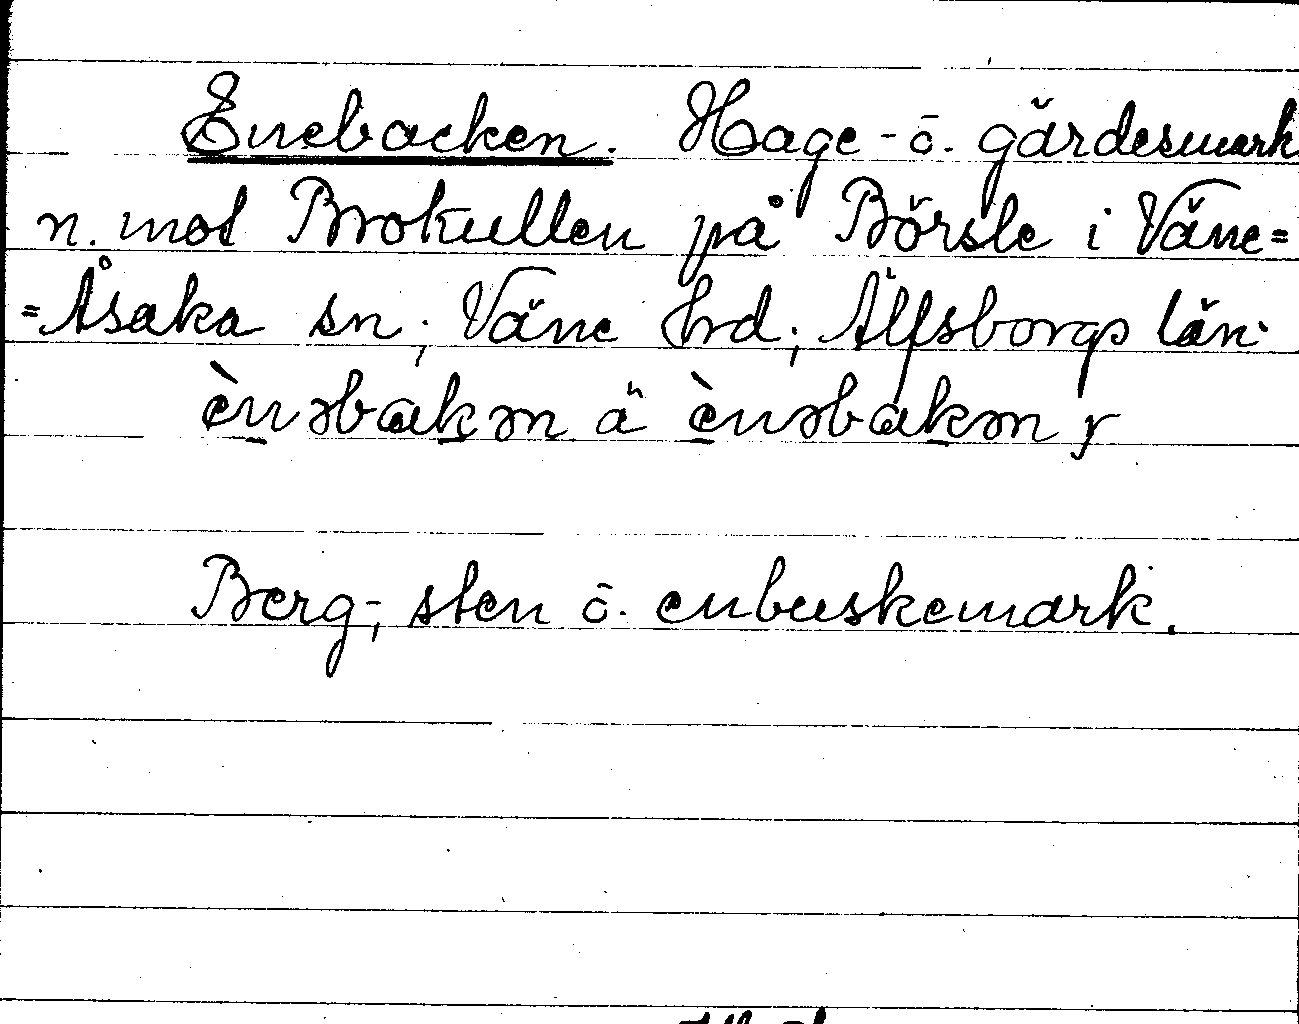 Enebacken. Hage- o. gärdesmark
n. mot Brokullen på Börsle i Väne=
=Åsaka sn, Väne hrd, Älfsborgs län.
ènəbakən ä ènəbakən,
Berg-, sten o. enbuskemark.